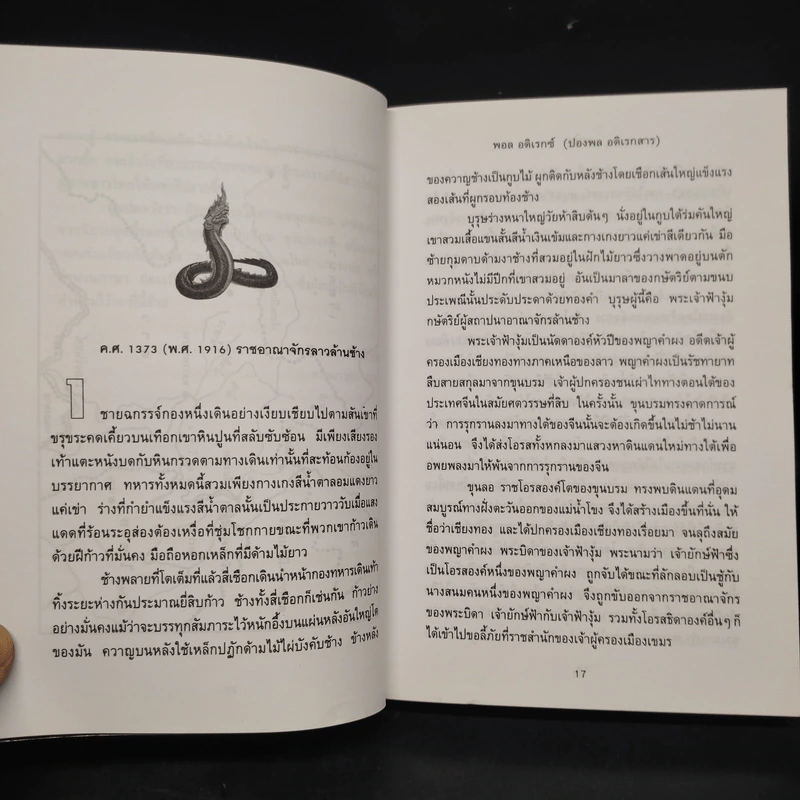 ค.ศ. 1373 (พ.ศ. 1916) ราชอาณาจักรลาวล้านช้าง
1
ชายฉกรรจ์กองหนึ่งเดินอย่างเงียบเชียบไปตามสันเขาที่
ขรุขระคดเคี้ยวบนเทือกเขาหินปูนที่สลับซับซ้อน มีเพียงเสียงรอง
เท้าแตะหนังบดกับหินกรวดตามทางเดินเท่านั้นที่สะท้อนก้องอยู่ใน
บรรยากาศ ทหารทั้งหมดนี้สวมเพียงกางเกงสีน้ำตาลอมแดงยาว
แค่เข่า ร่างที่กำยำแข็งแรงสีน้ำตาลนั้นเป็นประกายวาววับเมื่อแสง
แดดที่ร้อนระอุส่องต้องเหงื่อที่ชุ่มโชกกายขณะที่พวกเขาก้าวเดิน
ด้วยฝีก้าวที่มั่นคง มือถือหอกเหล็กที่มีด้ามไม้ยาว
ช้างพลายที่โตเต็มที่แล้วสี่เชือกเดินนำหน้ากองทหารเดินเท้า
ทิ้งระยะห่างกันประมาณยี่สิบก้าว ช้างทั้งสี่เชือกก็เช่นกัน ก้าวย่าง
อย่างมั่นคงแม้ว่าจะบรรทุกสัมภาระไว้หนักอึ้งบนแผ่นหลังอันใหญ่โต
ของมัน ควาญบนหลังใช้เหล็กปฏักด้ามไม้ไผ่บังคับช้าง ข้างหลัง
พอล อดิเรกซ์ (ปองพล อดิเรกสาร)
ของควาญช้างเป็นกูบไม้ ผูกติดกับหลังช้างโดยเชือกเส้นใหญ่แข็งแรง
สองเส้นที่ผูกรอบท้องช้าง
บุรุษร่างหนาใหญ่วัยห้าสิบต้นๆ นั่งอยู่ในกูบใต้ร่มคันใหญ่
เขาสวมเสื้อแขนสั้นสีน้ำเงินเข้มและกางเกงยาวแค่เข่าสีเดียวกัน มือ
ซ้ายกุมดาบด้ามงาช้างที่สวมอยู่ในฝักไม้ยาวซึ่งวางพาดอยู่บนตัก
หมวกหนังไม่มีปีกที่เขาสวมอยู่ อันเป็นมาลาของกษัตริย์ตามขนบ
ประเพณีนั้นประดับประดาด้วยทองคำ บุรุษผู้นี้คือ พระเจ้าฟ้างุ้ม
กษัตริย์ผู้สถาปนาอาณาจักรล้านช้าง
พระเจ้าฟ้างุ้มเป็นนัดดาองค์หัวปีของพญาคำผง อดีตเจ้าผู้
ครองเมืองเชียงทองทางภาคเหนือของลาว พญาคำผงเป็นรัชทายาท
สืบสายสกุลมาจากขุนบรม เจ้าผู้ปกครองชนเผ่าไททางตอนใต้ของ
ประเทศจีนในสมัยศตวรรษที่สิบ ในครั้งนั้น ขุนบรมทรงคาดการณ์
ว่า การรุกรานลงมาทางใต้ของจีนนั้นจะต้องเกิดขึ้นในไม่ช้าไม่นาน
แน่นอน จึงได้ส่งโอรสทั้งหกลงมาแสวงหาดินแดนใหม่ทางใต้เพื่อ
อพยพลงมาให้พ้นจากการรุกรานของจีน
ขุนลอ ราชโอรสองค์โตของขุนบรม ทรงพบดินแดนที่อุดม
สมบูรณ์ทางฝั่งตะวันออกของแม่น้ำโขง จึงได้สร้างเมืองขึ้นที่นั่น ให้
ชื่อว่าเชียงทอง และได้ปกครองเมืองเชียงทองเรื่อยมา จนลุถึงสมัย
ของพญาคำผง พระบิดาของเจ้าฟ้างุ้ม พระนามว่า เจ้ายักษ์ฟ้าซึ่ง
เป็นโอรสองค์หนึ่งของพญาคำผง ถูกจับได้ขณะที่ลักลอบเป็นชู้กับ
นางสนมคนหนึ่งของพญาคำผง จึงถูกขับออกจากราชอาณาจักร
ของพระบิดา เจ้ายักษ์ฟ้ากับเจ้าฟ้างุ้ม รวมทั้งโอรสธิดาองค์อื่นๆ ก็
ได้เข้าไปขอลี้ภัยที่ราชสำนักของเจ้าผู้ครองเมืองเขมร
17